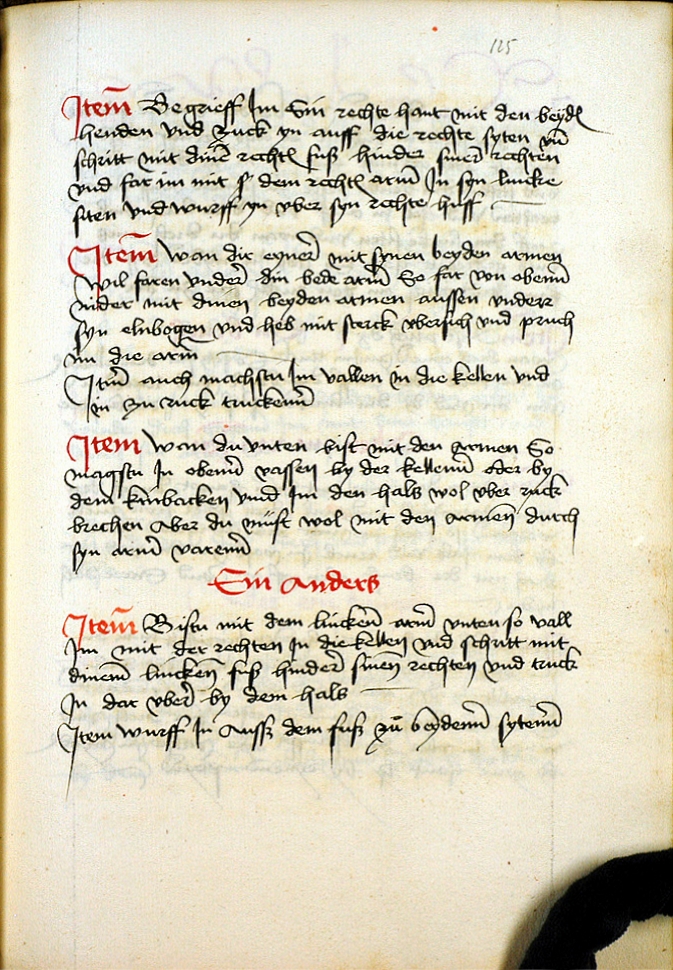 125
Item Begrieff Im Sin rechte hant mit den beyd
henden vnd zuck yn auff die rechte syten vn̄
schritt mit dine rechte fuß hinder siner rechten
vnd far im mit dem rechte arm In syn lincke
siten vnd wurff yn vber syn rechte huff
Item wan dir eyner mit synen beyden armen
wil faren vnder din bede arm So far von obenn
nider mit dinen beyden armen aussen vnderr
syn elnbogen vnd heb mit sterck vbersich vnd pruch
im die arm
Itm auch machstu Im vallen in die kellen vnd
in zu ruck truckenn
Item wan du vnten bist mit den armen So
magstu In obenn vassen by der kellenn oder by
dem kinbacken vnnd Im den hals wol vber ruck
brechen Aber du must wol mit den Armen durch
syn arm varenn
Ein Anders
Item Bistu mit dem lincken arm vnten so vall
Im mit der rechten In die kellen vnd schritt mit
dinem lincken fuß hinder sinen rechten vnd truck
In dar vber by dem hals
Item wurff In Ausß dem fuß zu beydenn sytenn